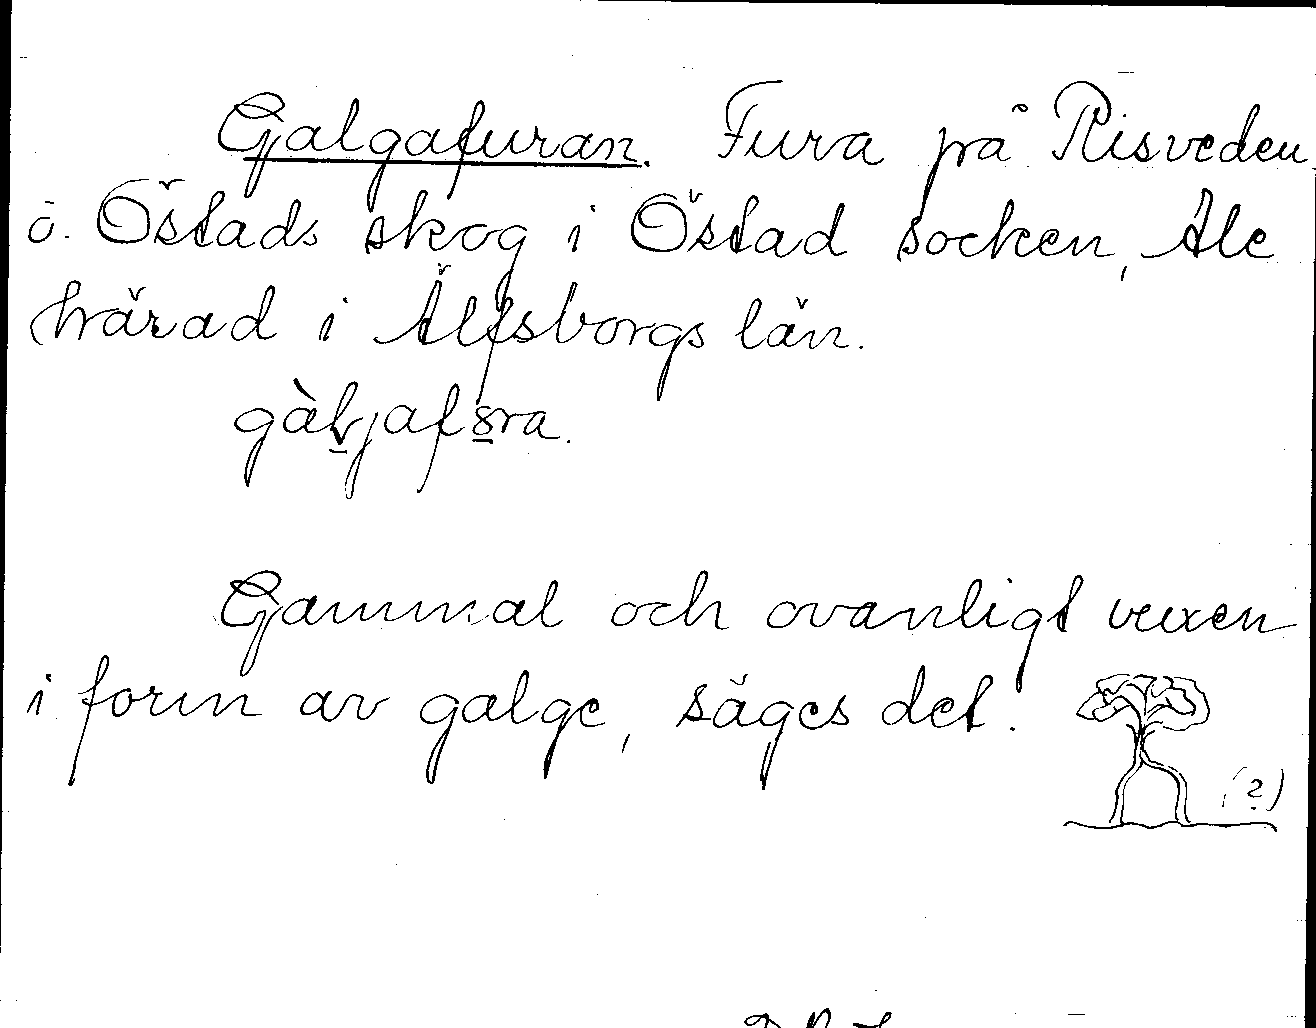 Galgafuran. Fura på Risveden
ö. Östads skog i Östad socken, Ale
härad i Älfsborgs län.
Gammal och ovanligt vuxen
i form av galge, säges det.
(?)